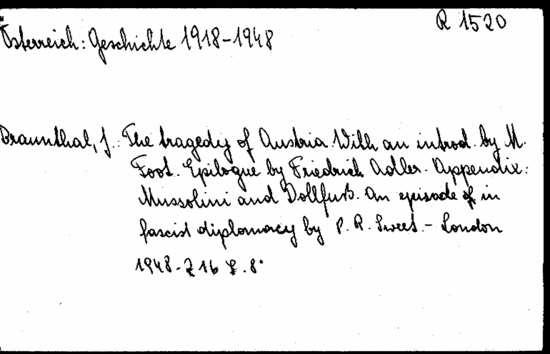 R 1520
Österreich: Geschichte 1918-1948
Braunthal, J.: The tragedy of Austria. With an introd. by M.
Foot. Epilogue by Friedrich Adler. Appendix:
Mussolini and Dollfuß. An episode of in
fascist diplomacy by P. R. Sweet. - London
1948. 216 S. 8°